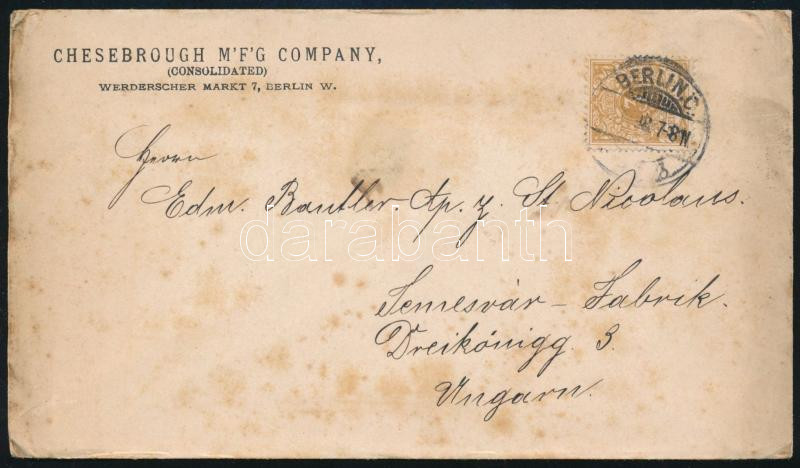 CHESEBROUGH M'F'G COMPANY,
(CONSOLIDATED)
WERDERSCHER MARKT 7, BERLIN W.
BERLIN C.
7-8N
b
Herrn
Edm. Bantler. Ap. z. St Nicolaus.
darabanth
Temesvár – Fabrik.
Dreikönigg 3.
Ungarn.